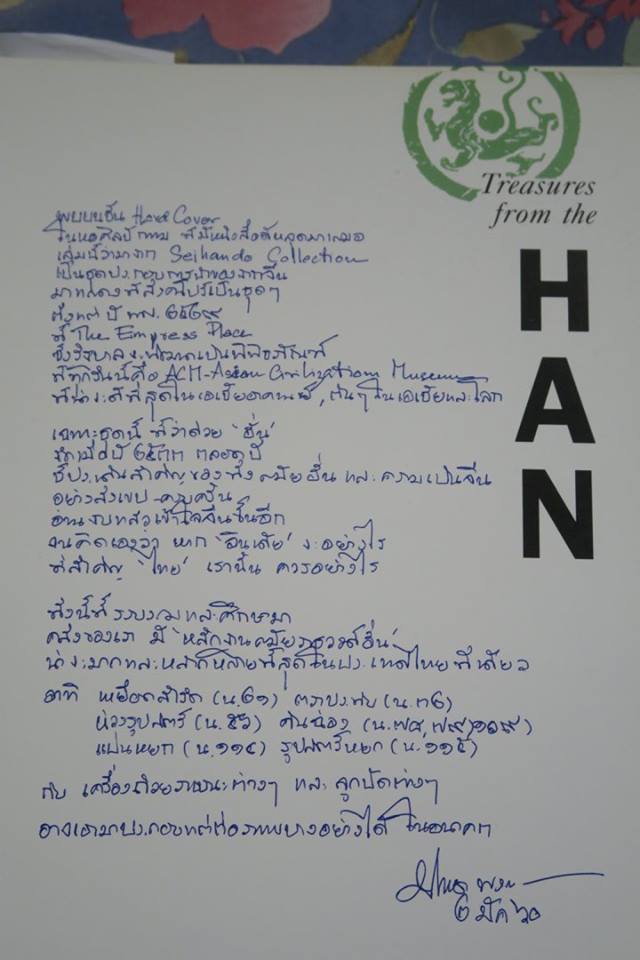 Treasures
from the
HAN
พบบนชั้น Hard Cover
ในหอศิลป์กทม ที่มีหนังสือดีหลุดมาเสมอ
เล่มนี้ว่ามาจาก Seihando Collection
เป็นชุดประกอบการนำของจากจีน
มาแสดงที่สิงคโปร์เป็นชุดๆ
ตั้งแต่ปี พศ. ๒๕๒๙
ที่ The Empress Place
ซึ่งรัฐบาล เป็นพิพิธภัณฑ์
ที่ทุกวันนี้คือ ACM-Asian Civilization Museum
ที่น่าจะดีที่สุดในเอเชียอาคเนย์, ต้นๆ ในเอเชียและโลก
เฉพาะชุดนี้ ที่ว่าด้วย 'ฮั่น'
จัดเมื่อปี ๒๕๓๓ ตลอดปี
ชี้ประเด็นสำคัญของทั้งสมัยฮั่น และความเป็นจีน
อย่างสังเขป-ครบครัน
อ่านจบแล้วเข้าใจจีนขึ้นอีก
จนคิดเองว่า หาก 'อินเดีย' จะอย่างไร
ที่สำคัญ 'ไทย' เรานั้น ควรอย่างไร
ทั้งนี้ที่รวบรวมและศึกษามา
คลังของเรา มี 'หลักฐานสมัยราชวงศ์ฮั่น'
น่าจะมากและหลากหลายที่สุดในประเทศไทยทีเดียว
อาทิ เหยือกสำริด (น.๖๑) ตราประทับ (น.๓๖)
ห่วงรูปสัตว์ (น.๕๖) คันฉ่อง (น.๗๘, ๗๙, ๑๑๙)
แผ่นหยก (น.๑๑๔) รูปสัตว์หยก (น.๑๑๕)
กับ เครื่องถ้วยภาชนะต่างๆ และ ลูกปัดต่างๆ
อาจเอามาประกอบแต่งต่อภาพบางอย่างได้ ในอนาคต
๒ มีค ๖๐